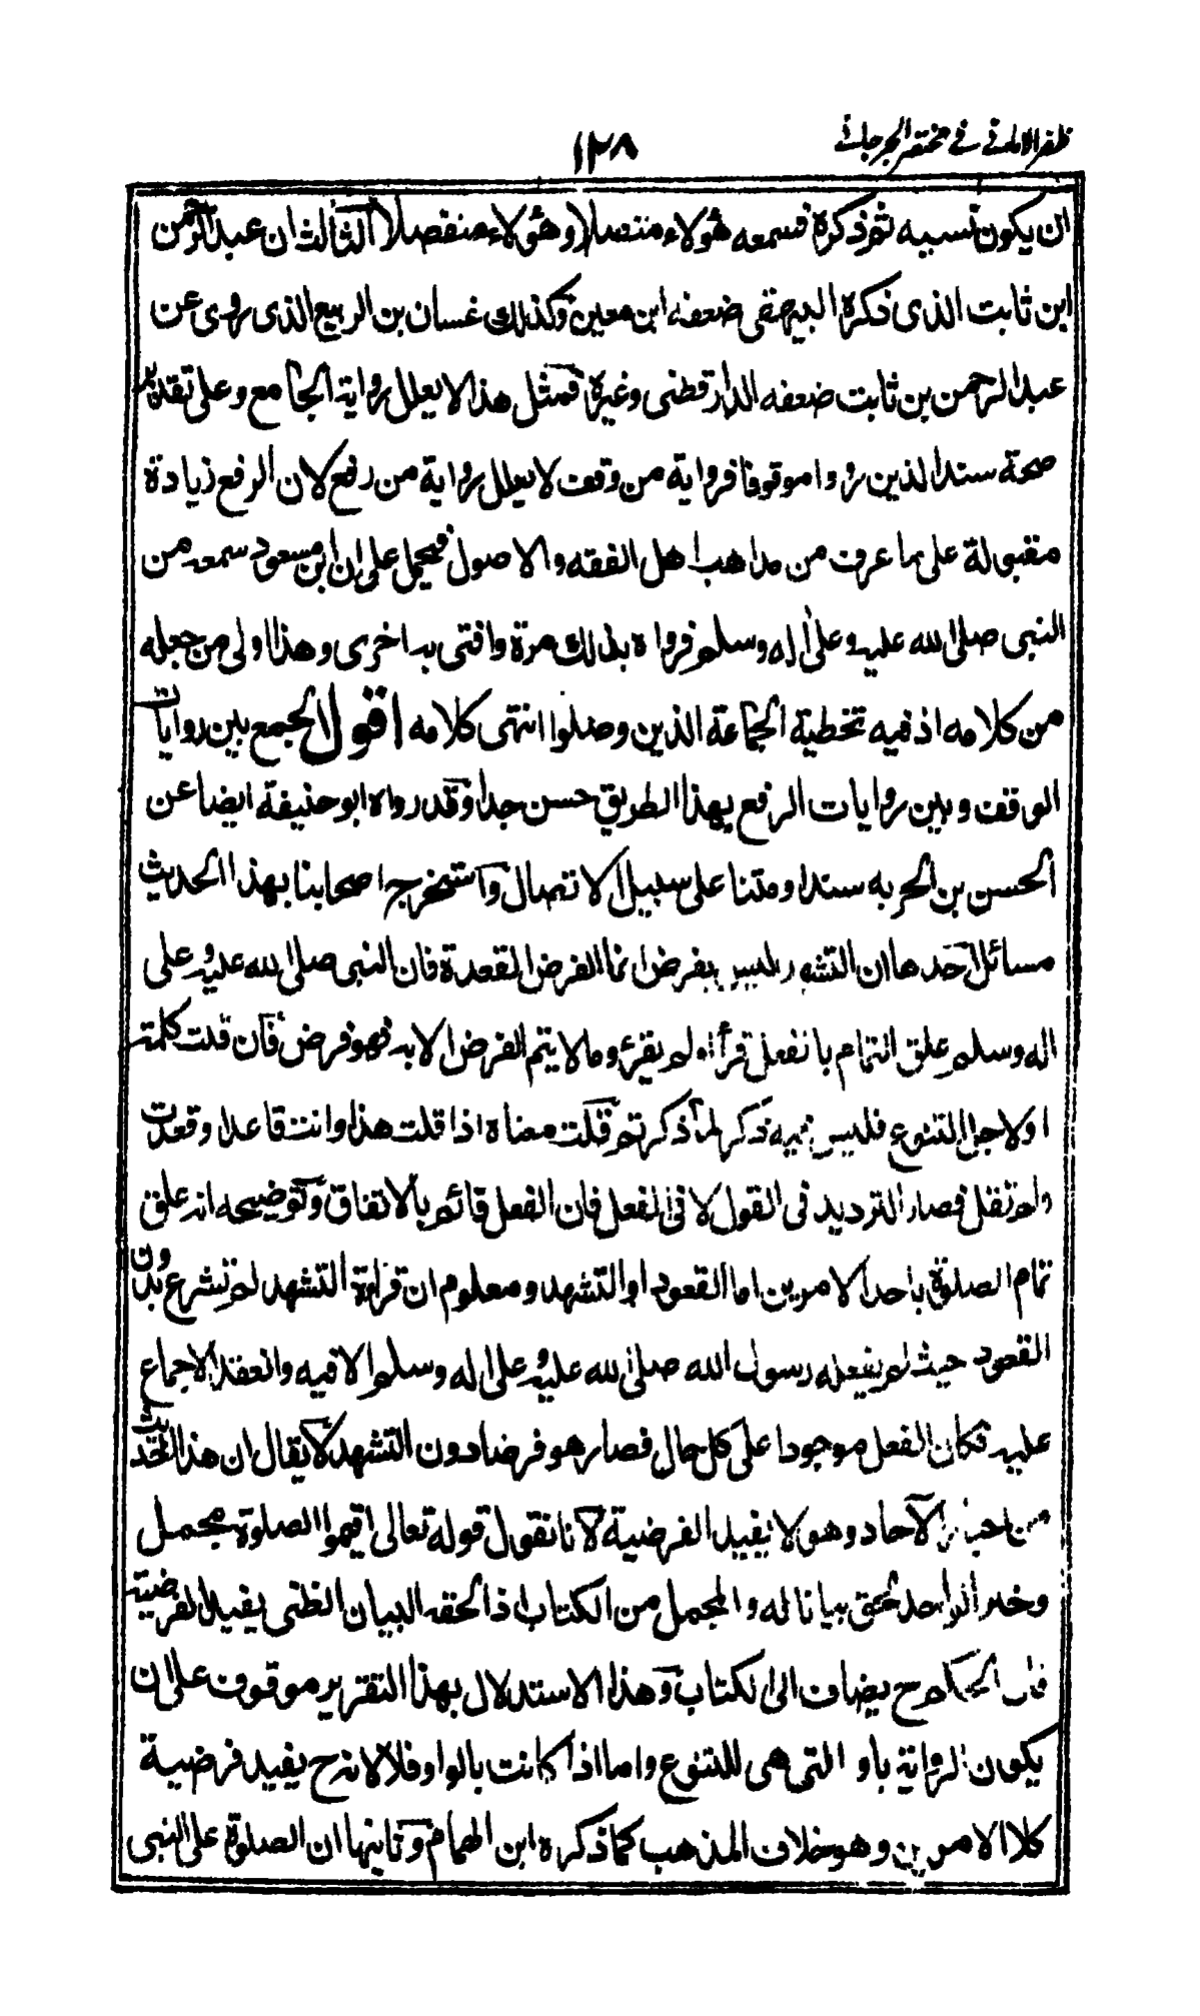 ظفر الامانی فی مختصر الجرجانی
١٢٨
ان یکون نسیه ثم ذکرہ فسمعه هؤلاء متصلا وهؤلاء منفصلا الثالث ان عبد الرحمن
ابن ثابت الذی ذکرہ البیهقی ضعفه ابن معین وکذلك غسان بن الربیع الذی روی عن
عبد الرحمن بن ثابت ضعفه الدارقطنی وغیرہ فمثل هذا لا یعلل روایة الجامع وعلی تقدیر
صحة سند الذین رووا موقوفا فروایة من وقف لا یعلل روایة من رفع لان الرفع زیادة
مقبولة علی ما عرف من مذاهب اهل الفقه والاصول فیحمل علی ان ابن مسعود سمعه من
النبی صلی الله علیه وعلی اله وسلم فرواہ بذلك مرة وافتی به اخری وهذا اولی من جعله
من کلامه اذ فیه تخطیة الجماعة الذین وصلوا انتهی کلامه اقول الجمع بین روایات
الوقف وبین روایات الرفع بهذا الطریق حسن جدا وقد رواہ ابو حنیفة ایضا عن
الحسن بن الحر به سندا ومتنا علی سبیل الاتصال واستخرج اصحابنا بهذا الحدیث
مسائل احدها ان التشهد لیس بفرض انما الفرض القعدة فان النبی صلی الله علیه وعلی
اله وسلم علق التمام بالفعل قرأ او لم یقرء وما لا یتم الفرض الا به فهو فرض فان قلت کلمة
او لاجل التنوع فلیس فیه ذکر لما ذکرتم قلت معناہ اذا قلت هذا وانت قاعد او قعدت
ولم تقل فصار التردید فی القول لا فی الفعل فان الفعل قائم بالاتفاق وتوضیحه انه علق
تمام الصلوة باحد الامرین اما القعود او التشهد ومعلوم ان قراءة التشهد لم تشرع بدون
القعود حیث لم یفعله رسول الله صلی الله علیه وعلی اله وسلم الا فیه وانعقد الاجماع
علیه فکان الفعل موجودا علی کل حال فصار هو فرضا دون التشهد لا یقال ان هذا الحدیث
من اخبار الآحاد وهو لا یفید الفرضیة لانا نقول قوله تعالی اقیموا الصلوة مجمل
وخبر الواحد لحق بیانا له والمجمل من الکتاب اذا لحقه البیان الظنی یفید الفرضیة
فان الحکم ح یضاف الی الکتاب وهذا الاستدلال بهذا التقریر موقوف علی ان
یکون الروایة باو التی هی للتنوع واما اذا کانت بالواو فلا لانه ح یفید فرضیة
کلا الامرین وهو خلاف المذهب کما ذکرہ ابن الهمام وثانیها ان الصلوة علی النبی